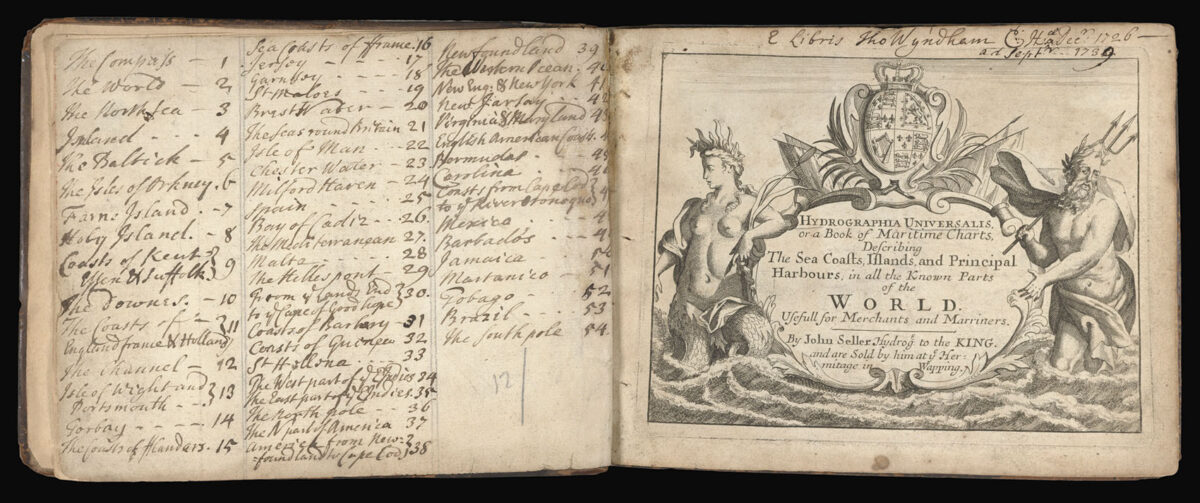 The Compass - 1
The World - 2
The North Sea - 3
Island - - - 4
The Baltick - 5
The Isles of Orkney. 6
Farns Island. - 7
Holy Island. - 8
Coasts of Kent
Essex & Suffolk } 9
The Downes. - 10
The Coasts of - } 11
England france & Holland
The Channel - 12
Isle of Wight and } 13
Portsmouth - - -
Torbay - - - - 14
The Coasts of flanders. 15
Sea Coasts of ffrance. 16
Jersey - - - - 17
Garnsey - - - 18
St Maloes - - 19
Brest Water - 20
The Seas round Britain 21
Isle of Man - - 22
Chester Water - 23
Milford Haven - 24
Spain - - - 25
Bay of Cadiz - - 26.
The Mediterranean 27.
Malta - - - 28
The Hellespont - 29
from ye Lands End } 30.
to ye Cape of Good hope
Coasts of Barbary 31
Coasts of Guienea 32
St Hellena - - - 33
The West part of ye Indies 34
The East part of ye Indies. 35
The North pole - - 36
The N part of America - 37
America from New- }
foundland to Cape Cod } 38
Newfoundland 39
The Western Ocean.
New Eng: & New York
New Jarsay - - -
Virginia & Maryland
English American Coasts.
Bermudas - - -
Carolina - -
Coasts from Cape Cod
to ye River
Mexico - - -
Barbados - -
Jamaica - -
Martanico - - 51
Tobago - - - 52
Brazil - - - 53
The South pole - 54
12
E Libris Tho Wyndham Decr. 1726 -
ad Septr - 1739
HYDROGRAPHIA UNIVERSALIS,
or a Book of Maritime Charts,
Describing
The Sea Coasts, Islands, and Principal
Harbours, in all the Known Parts
of the
WORLD.
Usefull for Merchants and Marriners.
By John Seller Hydrogr. to the KING.
and are Sold by him at ye Her-
mitage in Wapping.